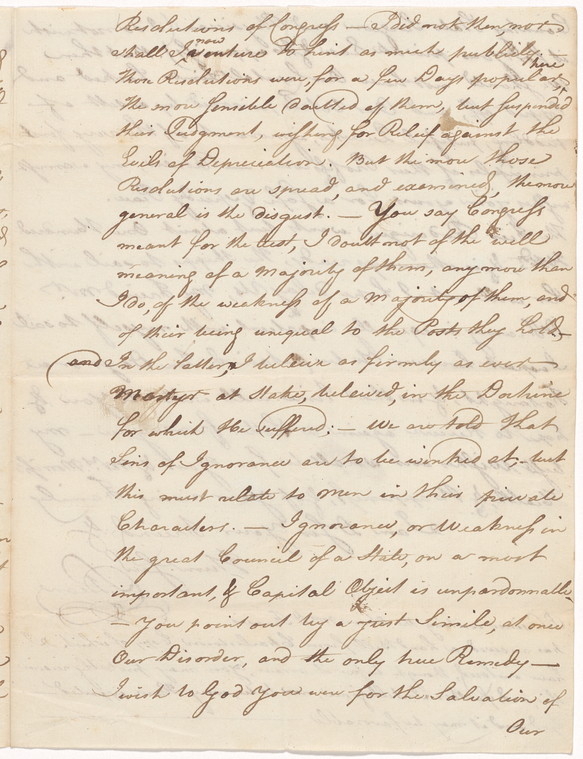 Resolutions of Congress — I did not then, nor
shall I now venture to hint as much publicly, here
those Resolutions were, for a few Days popular,
the more sensible doubted of them, but suspended
their Judgment, wishing for Relief against the
Evils of Depreciation. But the more those
Resolutions are spread, and examined, the more
general is the disgust. — You say Congress
meant for the best, I doubt not of the well
meaning of a Majority of them, any more than
I do, of the weakness of a Majority of them, and
of their being unequal to the Posts they hold —
and In the latter I beleive as firmly as ever
Martyr at Stake, beleived, in the Doctrine
for which He suffered; — We are told that
Sins of Ignorance are to be winked at, — but
this must relate to Men in their private
Characters. — Ignorance, or Weakness in
the great Council of a State, on a most
important, & Capital Object is unpardonnable
— You point out by a just Simile, at once
Our Disorder, and the only true Remedy —
I wish to God You were for the Salvation of
Our